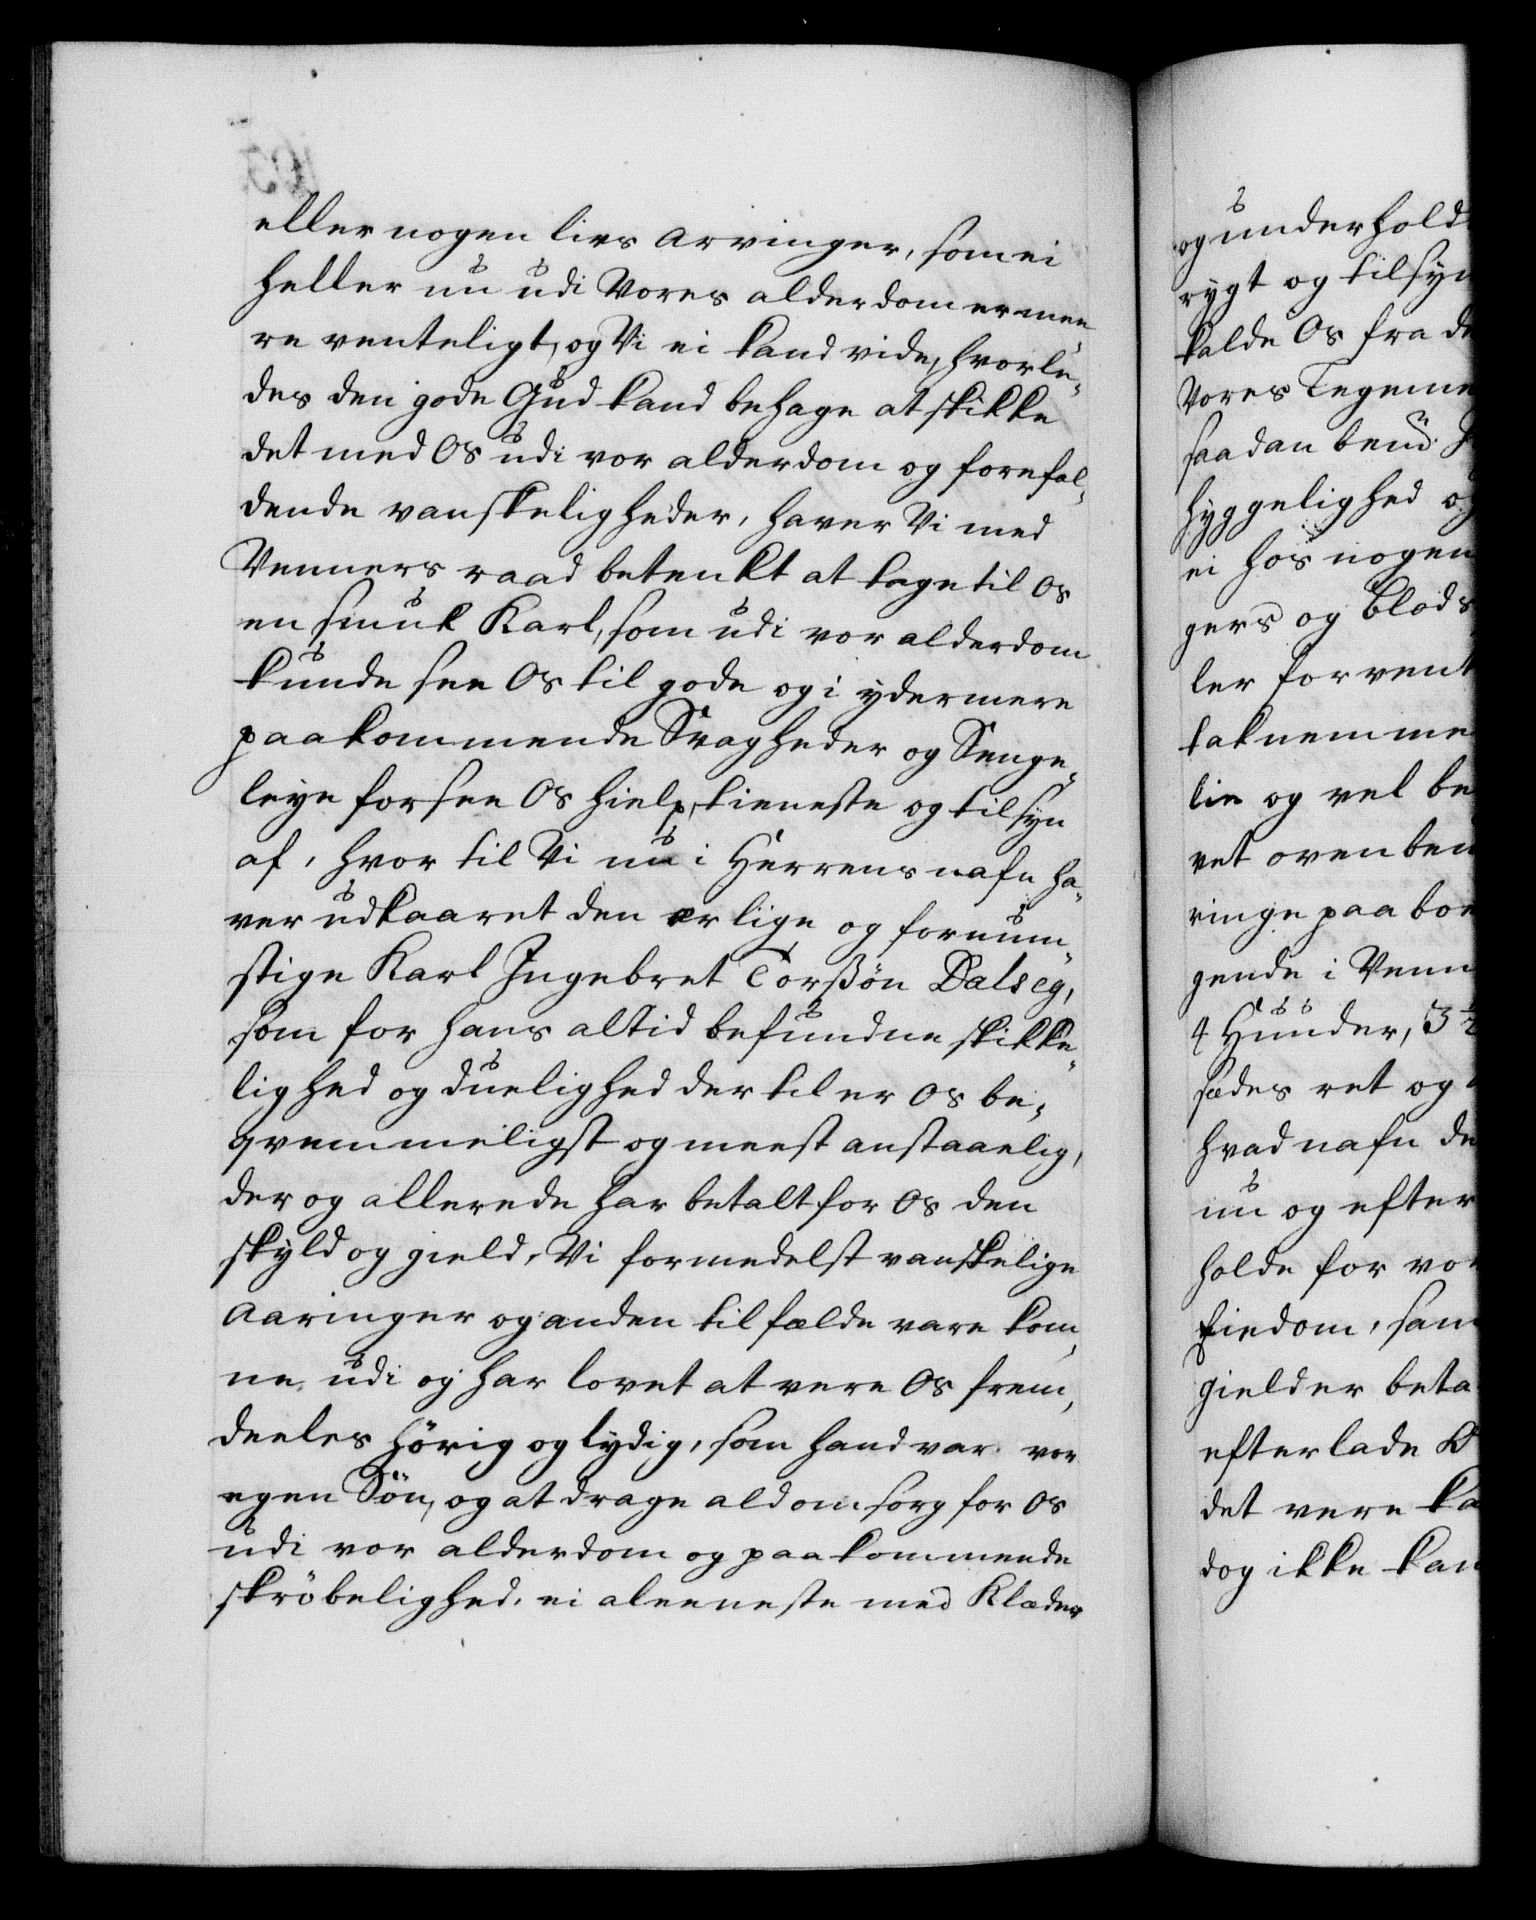 eller nogen livs Arvinger, som ei
heller nu udi Vores alderdom er mee¬
re venteligt, og Vi ei kand vide, hvorle¬
des den gode Gud kand behage at skikke
det med Os udi vor alderdom og forefal¬
dende vanskeligheder, haver Vi med
Venners raad betenkt at tage til Os
en smuk Karl, som udi vor alderdom
kunde see Os til gode og i ydermere
paakommende Svagheder og Senge¬
leye forsee Os hielp, tieneste og tilsyn
af, hvor til Vi nu i Herrens nafn ha¬
ver udkaaret den ærlige og fornum¬
stige Karl Ingebret Torßön Dalseg,
som for hans altid befundne skikke¬
lighed og duelighed der til er Os be¬
qvemmeligst og meest anstaaelig,
der og allerede har betalt for Os den
skyld og gield, Vi formedelst vanskelige
Aaringer og anden tilfælde vare kom¬
ne udi og har lovet at vere Os frem¬
deeles hörig og lydig, som hand var vor
egen Sön, og at drage ald omsorg for Os
udi vor alderdom og paakommende
skröbelighed, ei aleeneste med Klæder
og underhold
rygt og tilsyn
kalde Os fra de
Vores Legeme
saadan benud
hyggelighed og
ei hos nogen
gers og Blods
ler forvent
taknemme
lie og vel be
vet ovenben
ringe paaboe
gende i Venn
4 Hunder, 3 ½
sædes ret og
hvad nafn de
nu og efter
holde for vor
Eiedom, sam
gielder beta
efterlade
det vere ka
dog ikke kan